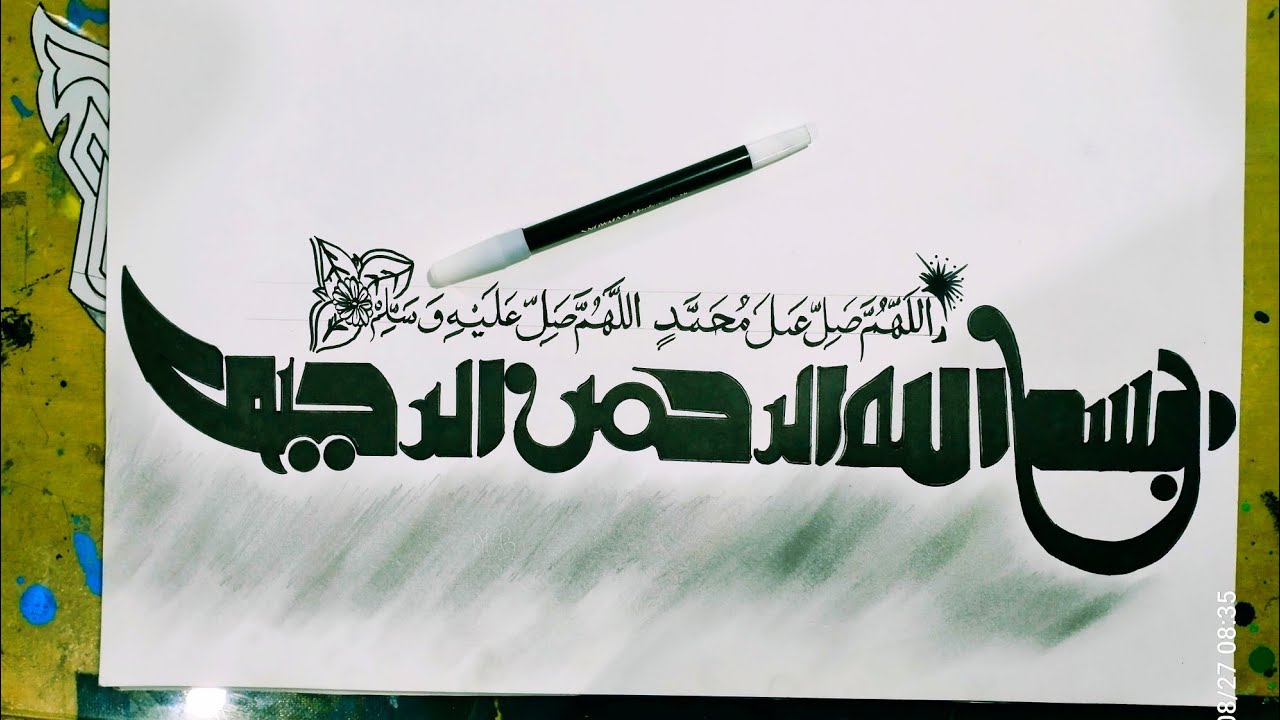 اللَّهُمَّ صَلِّ عَلَى مُحَمَّدٍ اللَّهُمَّ صَلِّ عَلَيْهِ وَسَلِّمْ
بسم الله الرحمن الرحيم
08/27 08:35